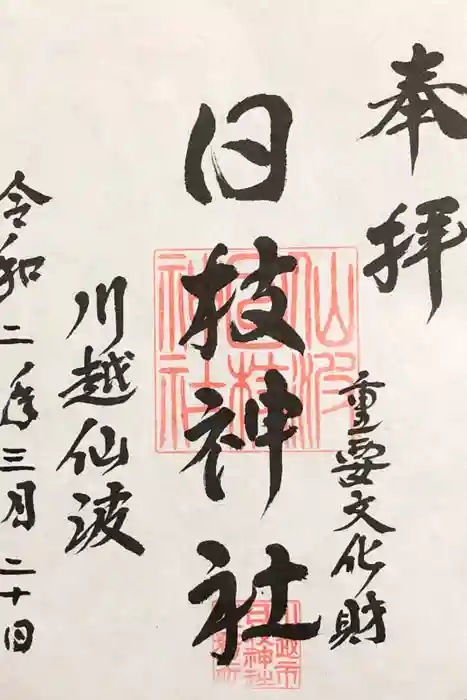 奉拝
重要文化財
日枝神社
川越仙波
令和二年三月二十日
仙波
日枝
神社